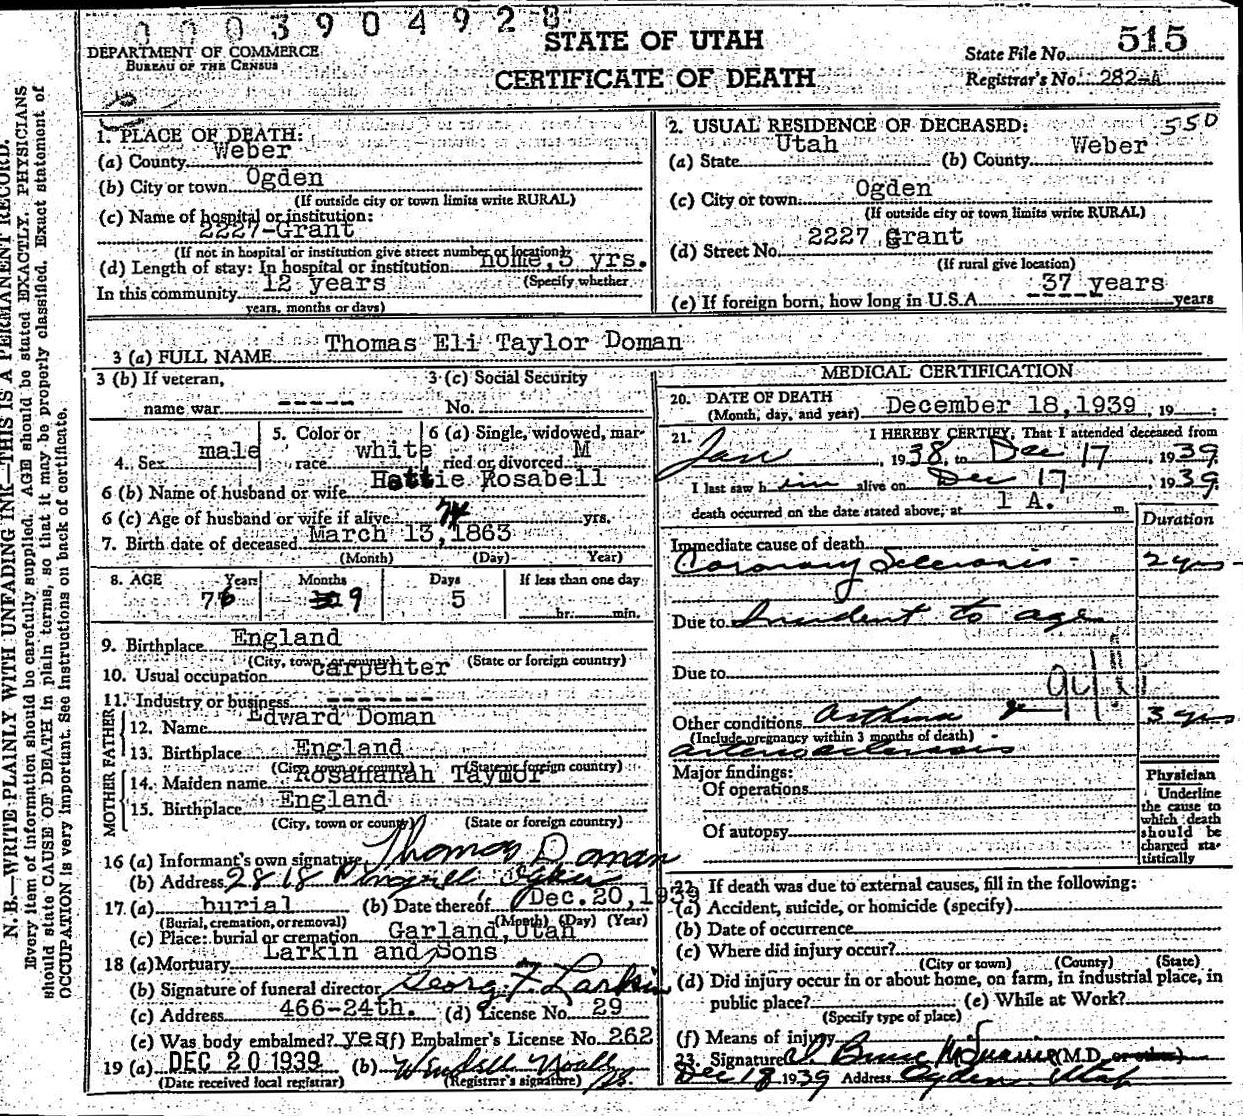 000390492 8
DEPARTMENT OF COMMERCE
BUREAU OF THE CENSUS
STATE OF UTAH
CERTIFICATE OF DEATH
State File No. 515
Registrar's No. 282-A
N.B.—WRITE PLAINLY WITH UNFADING INK—THIS IS A PERMANENT RECORD.
Every item of information should be carefully supplied. AGE should be stated EXACTLY. PHYSICIANS
should state CAUSE OF DEATH in plain terms, so that it may be properly classified. Exact statement of
OCCUPATION is very important. See instructions on back of certificate.
1. PLACE OF DEATH:
(a) County Weber
(b) City or town Ogden
(If outside city or town limits write RURAL)
(c) Name of hospital or institution:
2227-Grant
(If not in hospital or institution give street number or location)
(d) Length of stay: In hospital or institution home, 3 yrs.
(Specify whether
In this community 12 years
years, months or days)
2. USUAL RESIDENCE OF DECEASED: 550
(a) State Utah (b) County Weber
(c) City or town Ogden
(If outside city or town limits write RURAL)
(d) Street No. 2227 Grant
(If rural give location)
(e) If foreign born, how long in U.S.A. 37 years years
3 (a) FULL NAME Thomas Eli Taylor Doman
3 (b) If veteran,
name war -----
3 (c) Social Security
No.
4. Sex male
5. Color or
race white
6 (a) Single, widowed, mar-
ried or divorced M
6 (b) Name of husband or wife Hattie Rosabell
6 (c) Age of husband or wife if alive 74 yrs.
7. Birth date of deceased March 13, 1863
(Month) (Day) Year)
8. AGE Years Months Days If less than one day
76 9 5 hr. min.
9. Birthplace England
(City, town or county) (State or foreign country)
10. Usual occupation carpenter
11. Industry or business -------
FATHER
12. Name Edward Doman
13. Birthplace England
(City town or county) (State or foreign country)
MOTHER
14. Maiden name Rosannah Taymor
15. Birthplace England
(City, town or county) (State or foreign country)
16 (a) Informant's own signature Thomas Doman
(b) Address 2818 Ogden
17. (a) burial (b) Date thereof Dec. 20, 1939
(Burial, cremation, or removal) (Month) (Day) (Year)
(c) Place: burial or cremation Garland, Utah
18 (a) Mortuary Larkin and Sons
(b) Signature of funeral director George F Larkin
(c) Address 466-24th. (d) License No. 29
(e) Was body embalmed? yes (f) Embalmer's License No. 262
19 (a) DEC 20 1939 (b) Wendell Noall
(Date received local registrar) (Registrar's signature)
MEDICAL CERTIFICATION
20. DATE OF DEATH
(Month, day, and year) December 18, 1939, 19 ;
21. I HEREBY CERTIFY, That I attended deceased from
Jan, 1938, to Dec 17, 1939.
I last saw him alive on Dec 17, 1939,
death occurred on the date stated above, at 1 A. m.
Duration
Immediate cause of death
Coronary Sclerosis 2 yrs
Due to Incident to age
Due to
Other conditions Asthma & 3 yrs
(Include pregnancy within 3 months of death)
arteriosclerosis
Major findings:
Of operations
Of autopsy
Physician
Underline
the cause to
which death
should be
charged sta-
tistically
22. If death was due to external causes, fill in the following:
(a) Accident, suicide, or homicide (specify)
(b) Date of occurrence
(c) Where did injury occur?
(City or town) (County) (State)
(d) Did injury occur in or about home, on farm, in industrial place, in
public place? (e) While at Work?
(Specify type of place)
(f) Means of injury
23. Signature Bruce McQuarrie (M.D. or other)
Dec 18 1939 Address Ogden Utah